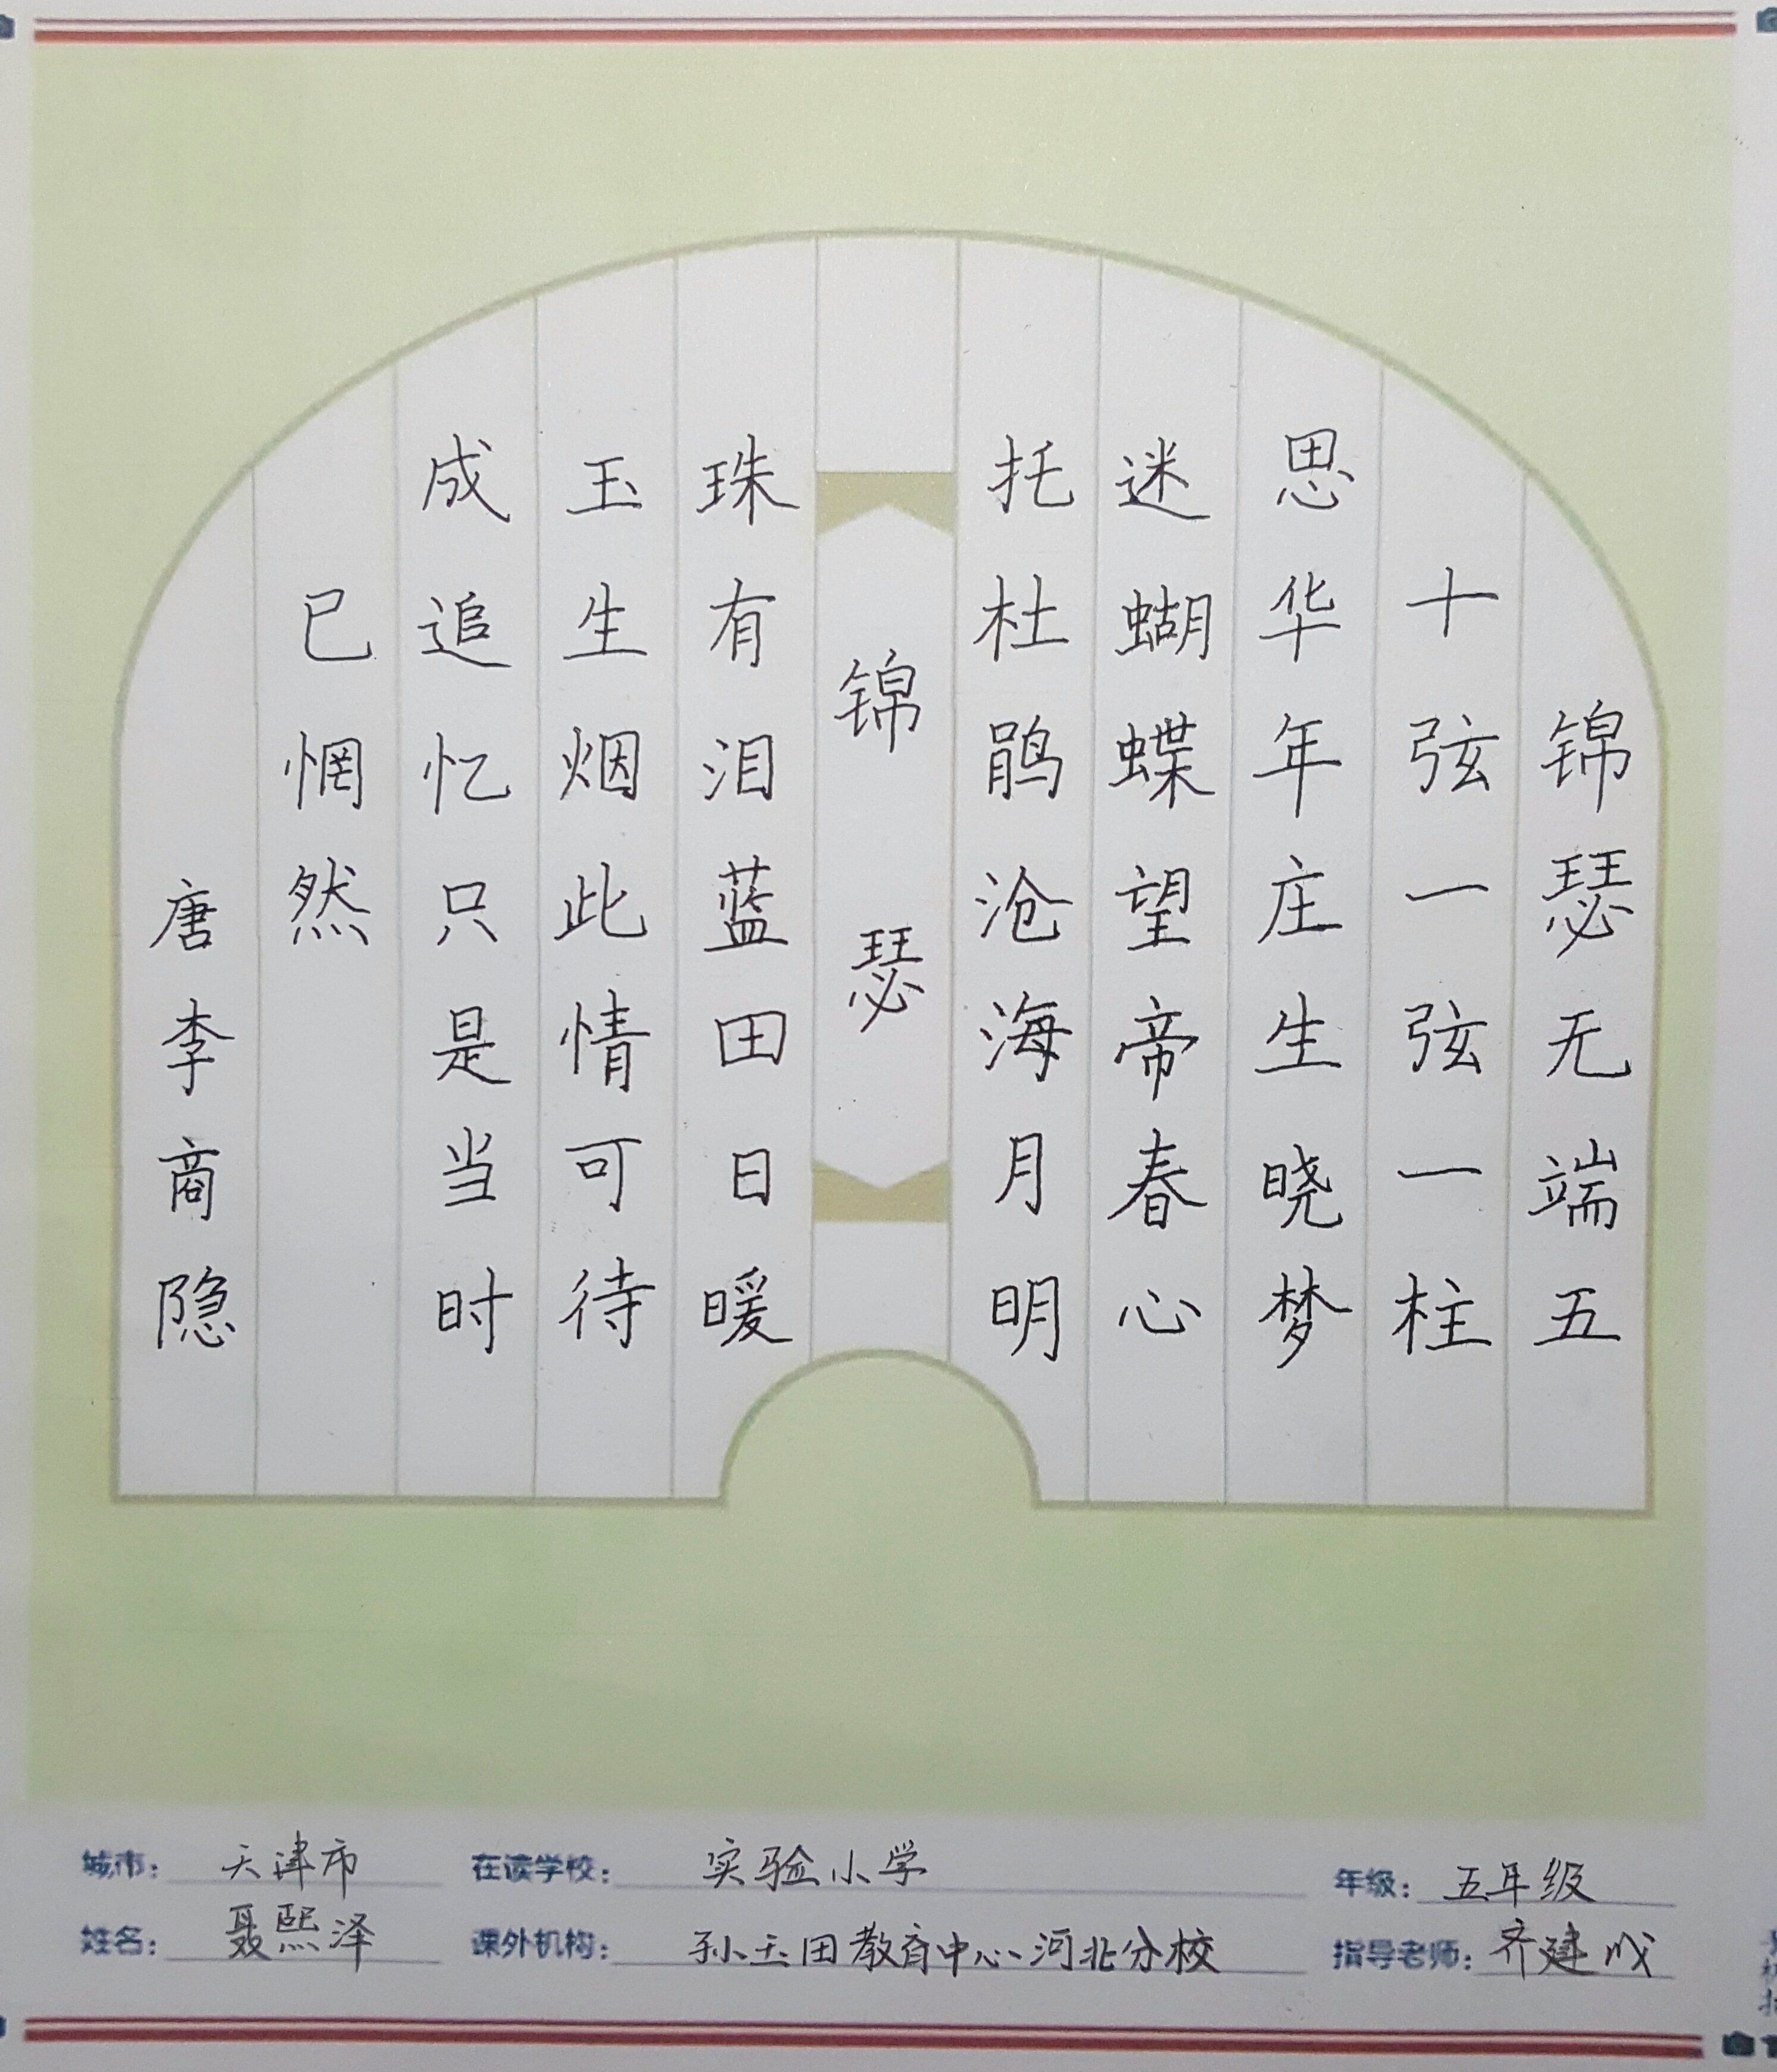 锦瑟无端五
十弦一弦一柱
思华年庄生晓梦
迷蝴蝶望帝春心
托杜鹃沧海月明
锦瑟
珠有泪蓝田日暖
玉生烟此情可待
成追忆只是当时
已惘然
唐李商隐
城市: 天津市 在读学校: 实验小学 年级: 五年级
姓名: 聂熙泽 课外机构: 孙玉田教育中心河北分校 指导老师: 齐建成